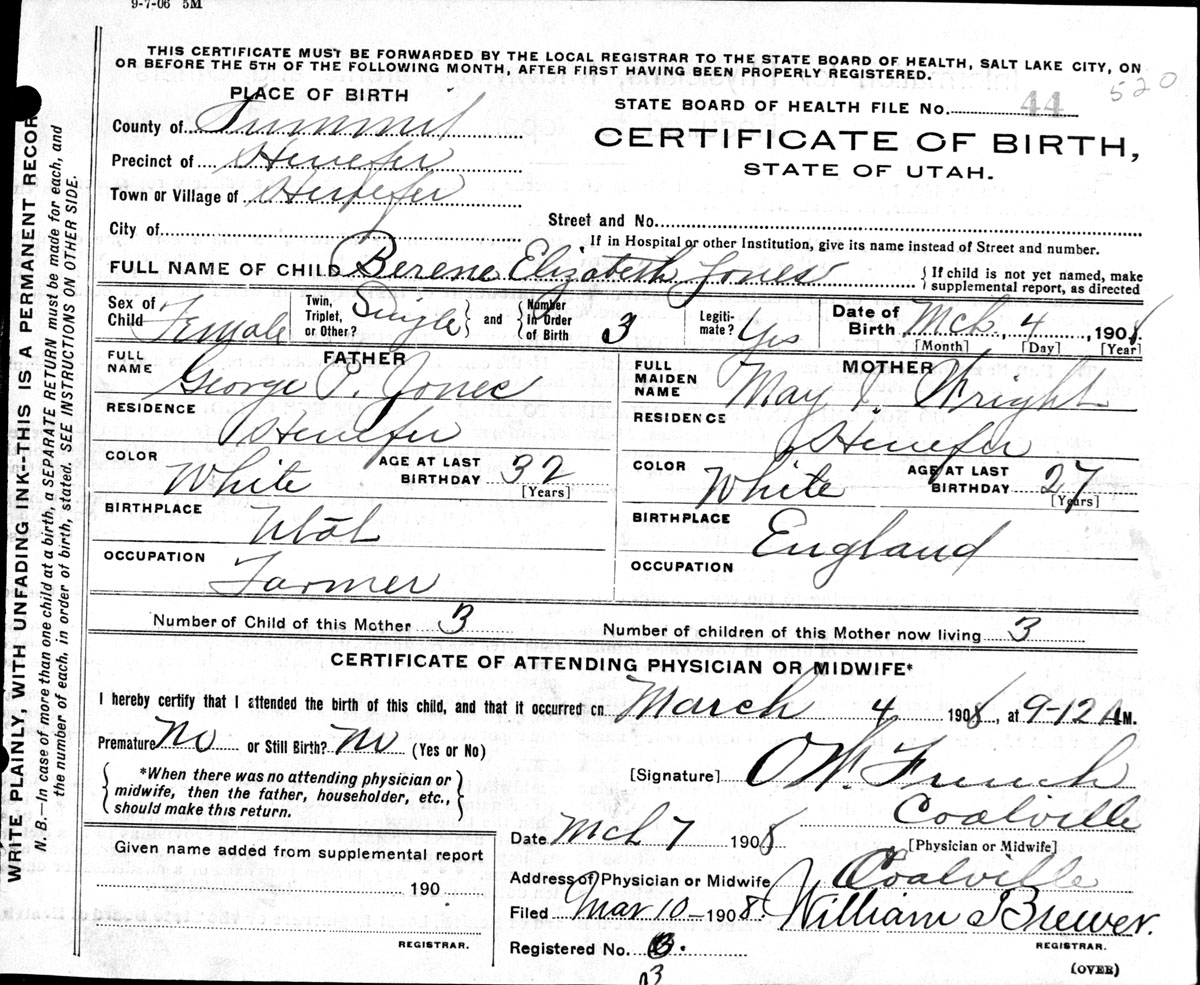 9-7-06 5M
THIS CERTIFICATE MUST BE FORWARDED BY THE LOCAL REGISTRAR TO THE STATE BOARD OF HEALTH, SALT LAKE CITY, ON
OR BEFORE THE 5TH OF THE FOLLOWING MONTH, AFTER FIRST HAVING BEEN PROPERLY REGISTERED.
520
PLACE OF BIRTH
STATE BOARD OF HEALTH FILE No. 44
County of Summit
CERTIFICATE OF BIRTH,
Precinct of Henefer
STATE OF UTAH.
Town or Village of Henefer
Street and No.
City of
If in Hospital or other Institution, give its name instead of Street and number.
FULL NAME OF CHILD Berene Elizabeth Jones { If child is not yet named, make supplemental report, as directed
Sex of Child Female Twin, Triplet, or Other? Single } and { Number in Order of Birth 3 Legiti- mate? Yes Date of Birth Mch. 4, 1908.
[Month] [Day] [Year]
FATHER
FULL NAME George P. Jones
RESIDENCE Henefer
COLOR White AGE AT LAST BIRTHDAY 32
[Years]
BIRTHPLACE Utah
OCCUPATION Farmer
MOTHER
FULL MAIDEN NAME May J. Wright
RESIDENCE Henefer
COLOR White AGE AT LAST BIRTHDAY 27
[Years]
BIRTHPLACE England
OCCUPATION
Number of Child of this Mother 3 Number of children of this Mother now living 3
CERTIFICATE OF ATTENDING PHYSICIAN OR MIDWIFE*
I hereby certify that I attended the birth of this child, and that it occurred on March 4 1908, at 9-12 A M.
Premature No or Still Birth? No (Yes or No)
*When there was no attending physician or
midwife, then the father, householder, etc.,
should make this return.
[Signature] O W. French
Coalville
[Physician or Midwife]
Date Mch 7 1908
Address of Physician or Midwife Coalville
Filed Mar 10-1908. William S Brewer.
REGISTRAR.
Registered No. 3.
3
(OVER)
Given name added from supplemental report
190
REGISTRAR.
WRITE PLAINLY, WITH UNFADING INK--THIS IS A PERMANENT RECOR
N. B.—In case of more than one child at a birth, a SEPARATE RETURN must be made for each, and
the number of each, in order of birth, stated. SEE INSTRUCTIONS ON OTHER SIDE.